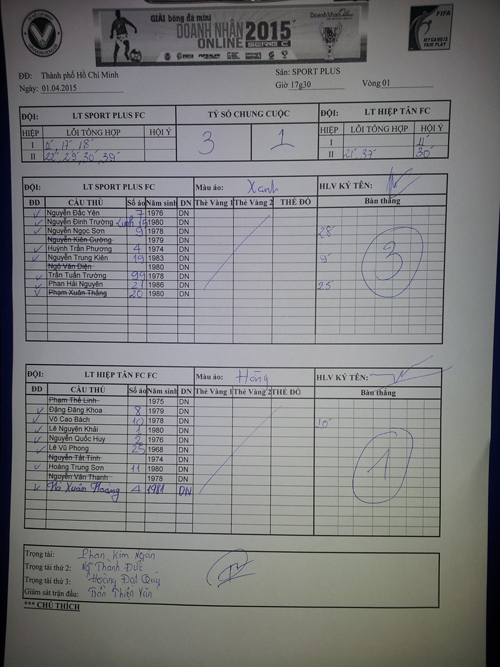 GIẢI bóng đá mini
DOANH NHÂN 2015
ONLINE SERIE C
FIFA
MY GAME IS FAIR PLAY
ĐĐ: Thành phố Hồ Chí Minh Sân: SPORT PLUS
Ngày: 01.04.2015 Giờ 17g30 Vòng 01
ĐỘI: LT SPORT PLUS FC TỶ SỐ CHUNG CUỘC ĐỘI: LT HIỆP TÂN FC
HIỆP LỖI TỔNG HỢP HỘI Ý 3 1 HIỆP LỖI TỔNG HỢP HỘI Ý
I 17' 18' I
II 30' II 21' 37' 30'
ĐỘI: LT SPORT PLUS FC Màu áo: Xanh HLV KÝ TÊN:
ĐD CẦU THỦ Số áo Năm sinh DN Thẻ Vàng 1 Thẻ Vàng 2 THẺ ĐỎ Bàn thắng
Nguyễn Đắc Yên 7 1976 DN
Nguyễn Đinh Trường Linh 1978 DN
Nguyễn Ngọc Sơn 9 1978 DN 28'
Nguyễn Kiên Cường 1979 DN
Huỳnh Trần Phương 4 1974 DN
Nguyễn Trung Kiên 19 1983 DN 9'
Ngô Văn Diện 1980 DN
Trần Tuấn Trường 99 1978 DN
Phan Hải Nguyên 21 1986 DN 25'
Phạm Xuân Thắng 20 1980 DN
3
ĐỘI: LT HIỆP TÂN FC FC Màu áo: Hồng HLV KÝ TÊN:
ĐD CẦU THỦ Số áo Năm sinh DN Thẻ Vàng 1 Thẻ Vàng 2 THẺ ĐỎ Bàn thắng
Phạm Thế Linh 1975 DN
Đặng Đăng Khoa 8 1979 DN
Võ Cao Bách 10 1978 DN 10'
Lê Nguyên Khải 1 1980 DN
Nguyễn Quốc Huy 2 1976 DN
Lê Vũ Phong 25 1968 DN
Nguyễn Tất Tính 1974 DN
Hoàng Trung Sơn 11 1980 DN
Nguyễn Văn Thanh 1978 DN
Xuân Hoàng 4 1981 DN
1
Trọng tài: Phan Kim Ngân
Trọng tài thứ 2: Ngô Thành Đức
Trọng tài thứ 3: Hoàng Đạt Quý
Giám sát trận đấu: Trần Thiện Văn
*** CHÚ THÍCH